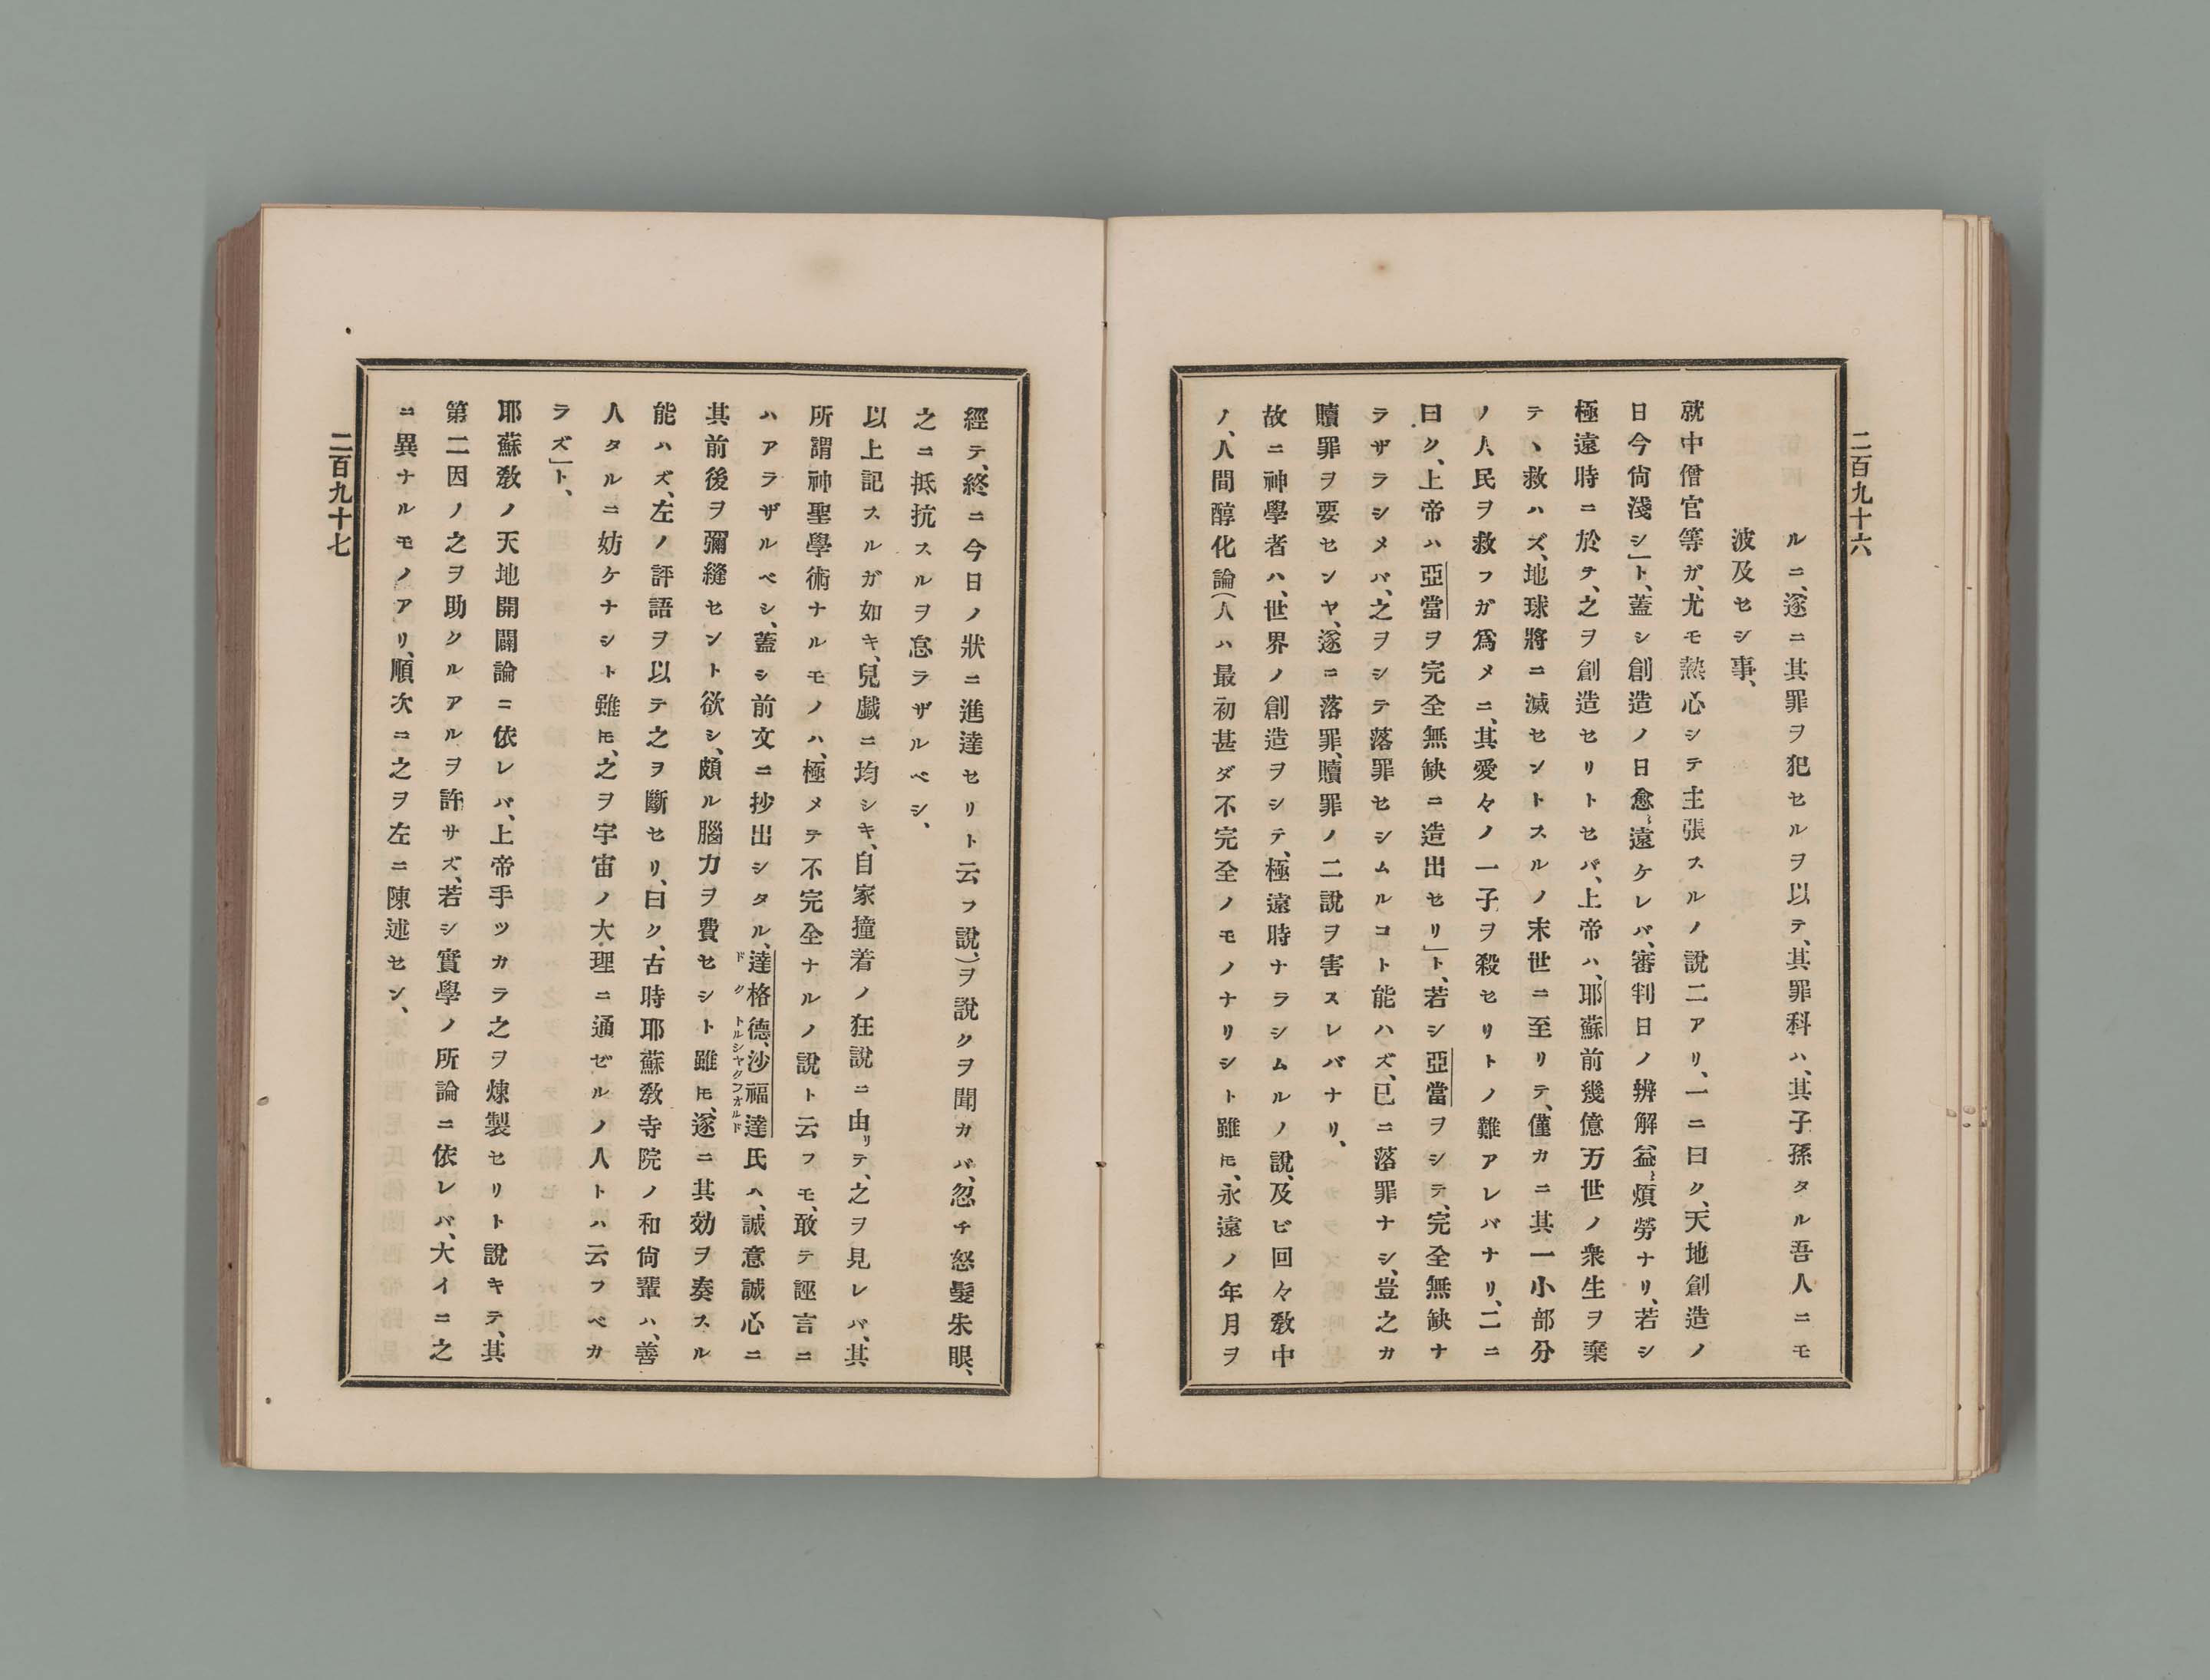 二百九十六
ルニ、遂ニ其罪ヲ犯セルヲ以テ、其罪科ハ、其子孫タル吾人ニモ
波及セシ事、
就中僧官等ガ、尤モ熱心シテ主張スルノ說二アリ、一ニ曰ク、天地創造ノ
日今尙淺シ」ト、蓋シ創造ノ日愈〻遠ケレバ、審判日ノ辨解益〻煩勞ナリ、若シ
極遠時ニ於テ、之ヲ創造セリトセバ、上帝ハ、耶蘇前幾億万世ノ衆生ヲ棄
テヽ救ハズ、地球將ニ滅セントスルノ末世ニ至リテ、僅カニ其一小部分
ノ人民ヲ救フガ爲メニ、其愛々ノ一子ヲ殺セリトノ難アレバナリ、二ニ
曰ク、上帝ハ亞當ヲ完全無缺ニ造出セリ」ト、若シ亞當ヲシテ、完全無缺ナ
ラザラシメバ、之ヲシテ落罪セシムルコト能ハズ、已ニ落罪ナシ、豈之カ
贖罪ヲ要センヤ、遂ニ落罪、贖罪ノ二說ヲ害スレバナリ、
故ニ神學者ハ、世界ノ創造ヲシテ、極遠時ナラシムルノ說、及ビ回々敎中
ノ、人間醇化論(人ハ最初甚ダ不完全ノモノナリシト雖𪜈、永遠ノ年月ヲ
經テ、終ニ今日ノ狀ニ進達セリト云フ說、)ヲ說クヲ聞カバ、忽チ怒髮朱眼、
之ニ抵抗スルヲ怠ラザルベシ、
以上記スルガ如キ、兒戲ニ均シキ、自家撞着ノ狂說ニ由リテ、之ヲ見レバ、其
所謂神聖學術ナルモノハ、極メテ不完全ナルノ說ト云フモ、敢テ誣言ニ
ハアラザルベシ、蓋シ前文ニ抄出シタル、達格德、沙福達氏ハ、誠意誠心ニ
ドクトルシヤクフオルド
其前後ヲ彌縫セント欲シ、頗ル腦力ヲ費セシト雖𪜈、遂ニ其効ヲ奏スル
能ハズ、左ノ評語ヲ以テ之ヲ斷セリ、曰ク、古時耶蘇敎寺院ノ和尙輩ハ、善
人タルニ妨ケナシト雖𪜈、之ヲ宇宙ノ大理ニ通ゼルノ人トハ云フベカ
ラズ」ト、
耶蘇敎ノ天地開闢論ニ依レバ、上帝手ツカラ之ヲ煉製セリト說キテ、其
第二因ノ之ヲ助クルアルヲ許サズ、若シ實學ノ所論ニ依レバ、大イニ之
ニ異ナルモノアリ、順次ニ之ヲ左ニ陳述セン、
二百九十七